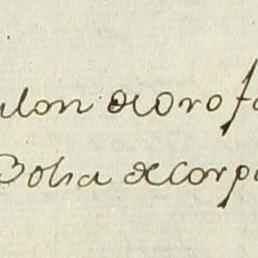 alon de oro fa
Bolsa de corp